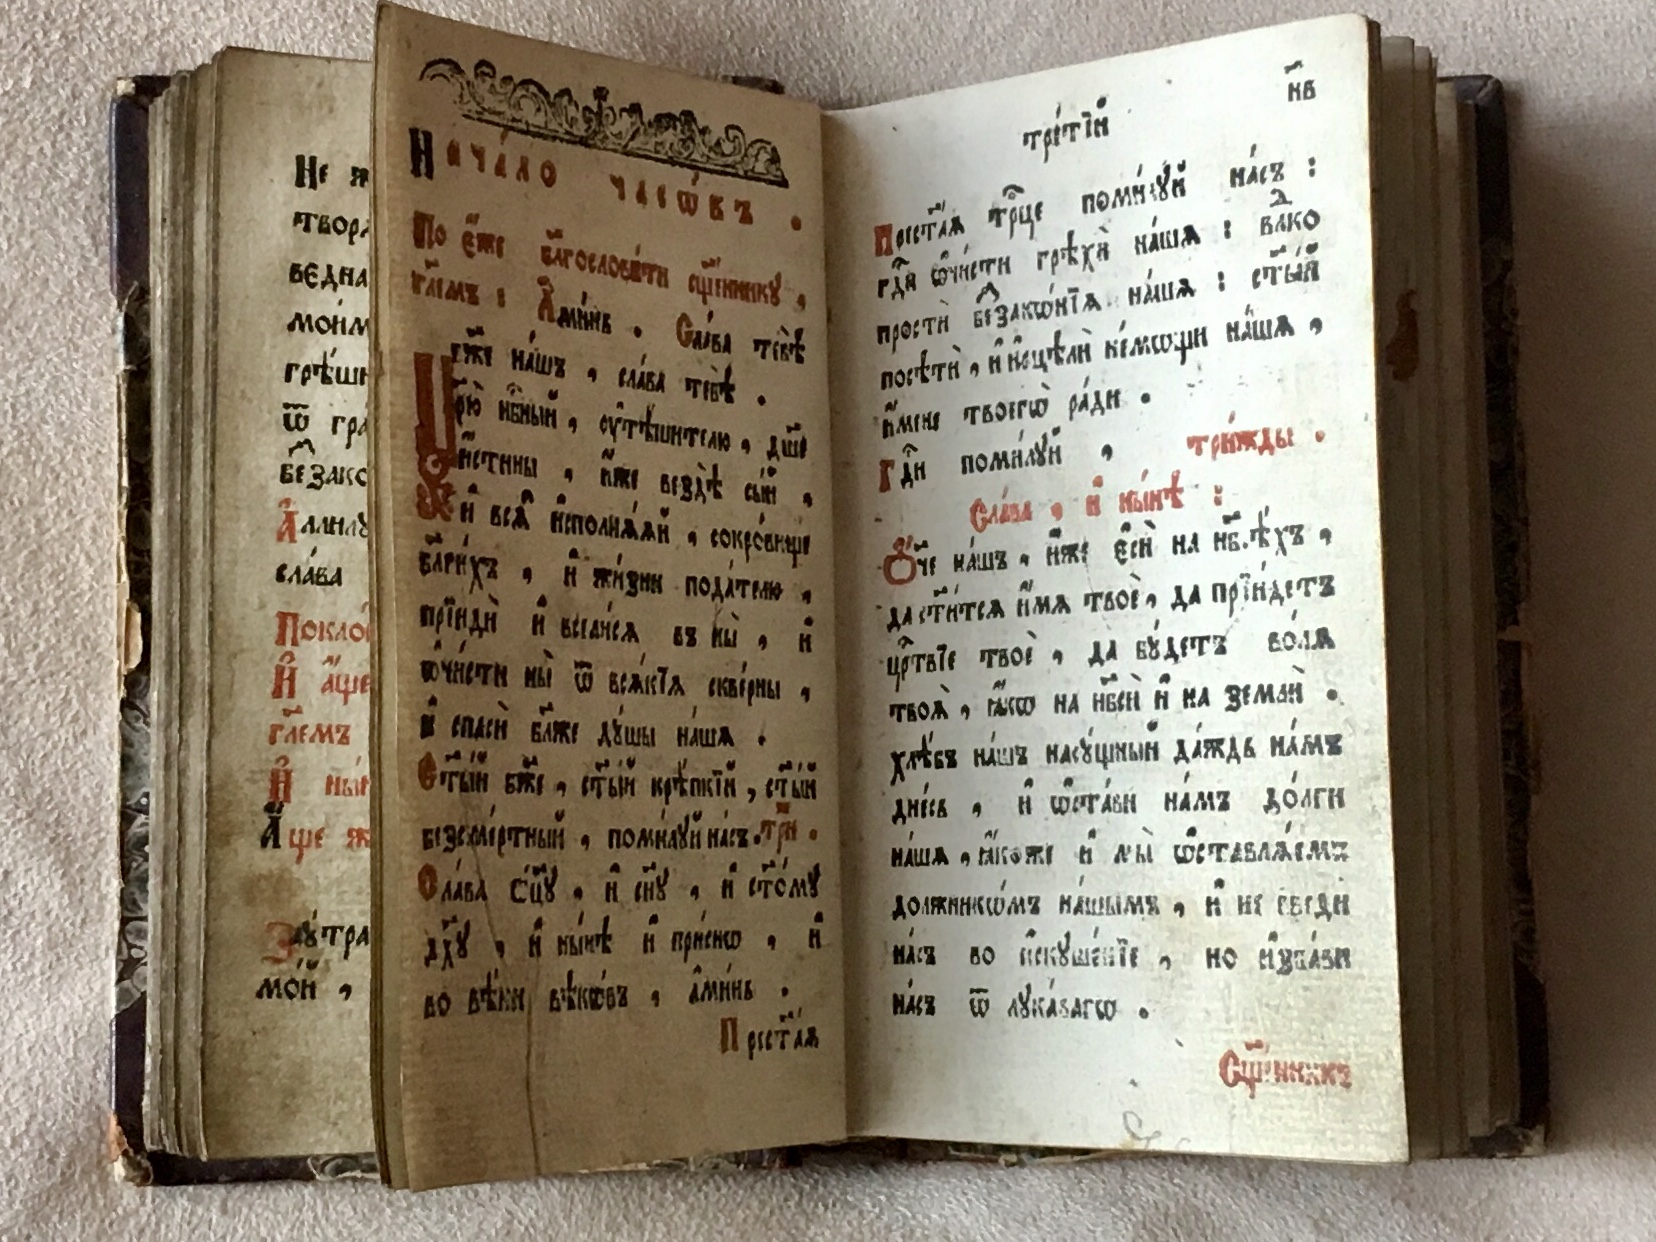 Не
твор
бєдна
моим
грѣшн
ѿ гра
беззако
Аллилу
слава
Покло
И аще
гл҃емъ
И нын
Аще ж
Заутра
мой ,
Нача́ло часѡ́въ .
По є҆́же бл҃гослови́ти сщ҃е́ннику ,
гл҃емъ : А҆ми́нь . Сла́ва тебѣ̀
бж҃е на́шъ , сла́ва тебѣ̀ .
Цр҃ю̀ нбⷭ҇ный , ѹ҆тѣ́шителю , дш҃е
и҆́стины , и҆́же вездѣ̀ сы́й ,
и҆ всѧ̑ и҆сполнѧ́ѧй , сокро́вище
бл҃ги́хъ , и҆ жи́зни пода́телю ,
прїидѝ и҆ всели́сѧ въ ны̀ , и҆
ѡ҆чи́сти ны̀ ѿ всѧ́кїѧ скве́рны ,
и҆ спасѝ бл҃же дꙋ́шы на́шѧ .
Ст҃ы́й бж҃е , ст҃ы́й крѣ́пкїй , ст҃ы́й
безсме́ртный , поми́лꙋй на́съ . три .
Сла́ва ѻ҆ц҃ꙋ̀ , и҆ сн҃ꙋ , и҆ ст҃о́мꙋ
дх҃ꙋ , и҆ ны́нѣ и҆ при́снѡ , и҆
во вѣ́ки вѣкѡ́въ , а҆ми́нь .
Прест҃а́ѧ
тре́тїй
н҃в
Прест҃а́ѧ трⷪ҇це поми́лꙋй на́съ :
гдⷭ҇и ѡ҆чи́сти грѣхѝ на́шѧ : влⷣко
простѝ беззакѡ́нїѧ на́шѧ : ст҃ы́й
посѣтѝ , и҆ и҆сцѣлѝ не́мощи на́шѧ ,
и҆́мене твоегѡ̀ ра́ди .
Гдⷭ҇и поми́лꙋй , три́жды .
Сла́ва , и҆ ны́нѣ :
Ѻ҆́че на́шъ , и҆́же є҆сѝ на нб҃сѣ́хъ ,
да ст҃и́тсѧ и҆́мѧ твоѐ , да прїи́детъ
црⷭ҇твїе твоѐ , да бꙋ́детъ во́лѧ
твоѧ̀ , ꙗ҆́кѡ на нб҃сѝ и҆ на землѝ .
хлѣ́бъ на́шъ насꙋ́щный да́ждь на́мъ
дне́сь , и҆ ѡ҆ста́ви на́мъ до́лги
на́шѧ , ꙗ҆́коже и҆ мы̀ ѡ҆ставлѧ́емъ
должникѡ́мъ на́шымъ , и҆ не введѝ
на́съ во и҆скꙋше́нїе , но и҆зба́ви
на́съ ѿ лꙋка́вагѡ .
Сщ҃е́нникъ